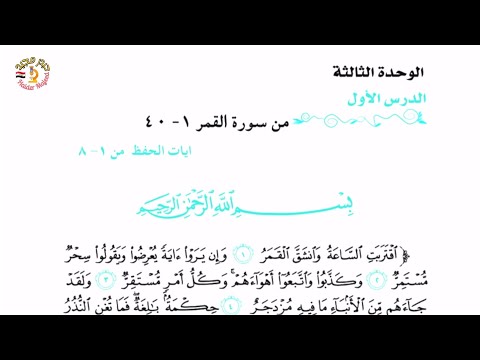 حيدر مجيد
Haider Majeed
الوحدة الثالثة
الدرس الأول
من سورة القمر ١ - ٤٠
ايات الحفظ من ١ - ٨
بِسْمِ اللَّهِ الرَّحْمَٰنِ الرَّحِيمِ
﴿ اقْتَرَبَتِ السَّاعَةُ وَانْشَقَّ الْقَمَرُ ۝١ وَإِن يَرَوْا ءَايَةً يُعْرِضُوا وَيَقُولُوا سِحْرٌ
مُّسْتَمِرٌّ ۝٢ وَكَذَّبُوا وَاتَّبَعُوا أَهْوَاءَهُمْ ۚ وَكُلُّ أَمْرٍ مُّسْتَقِرٌّ ۝٣ وَلَقَدْ
جَاءَهُم مِّنَ الْأَنۢبَاءِ مَا فِيهِ مُزْدَجَرٌ ۝٤ حِكْمَةٌۢ بَالِغَةٌ ۖ فَمَا تُغْنِ النُّذُرُ